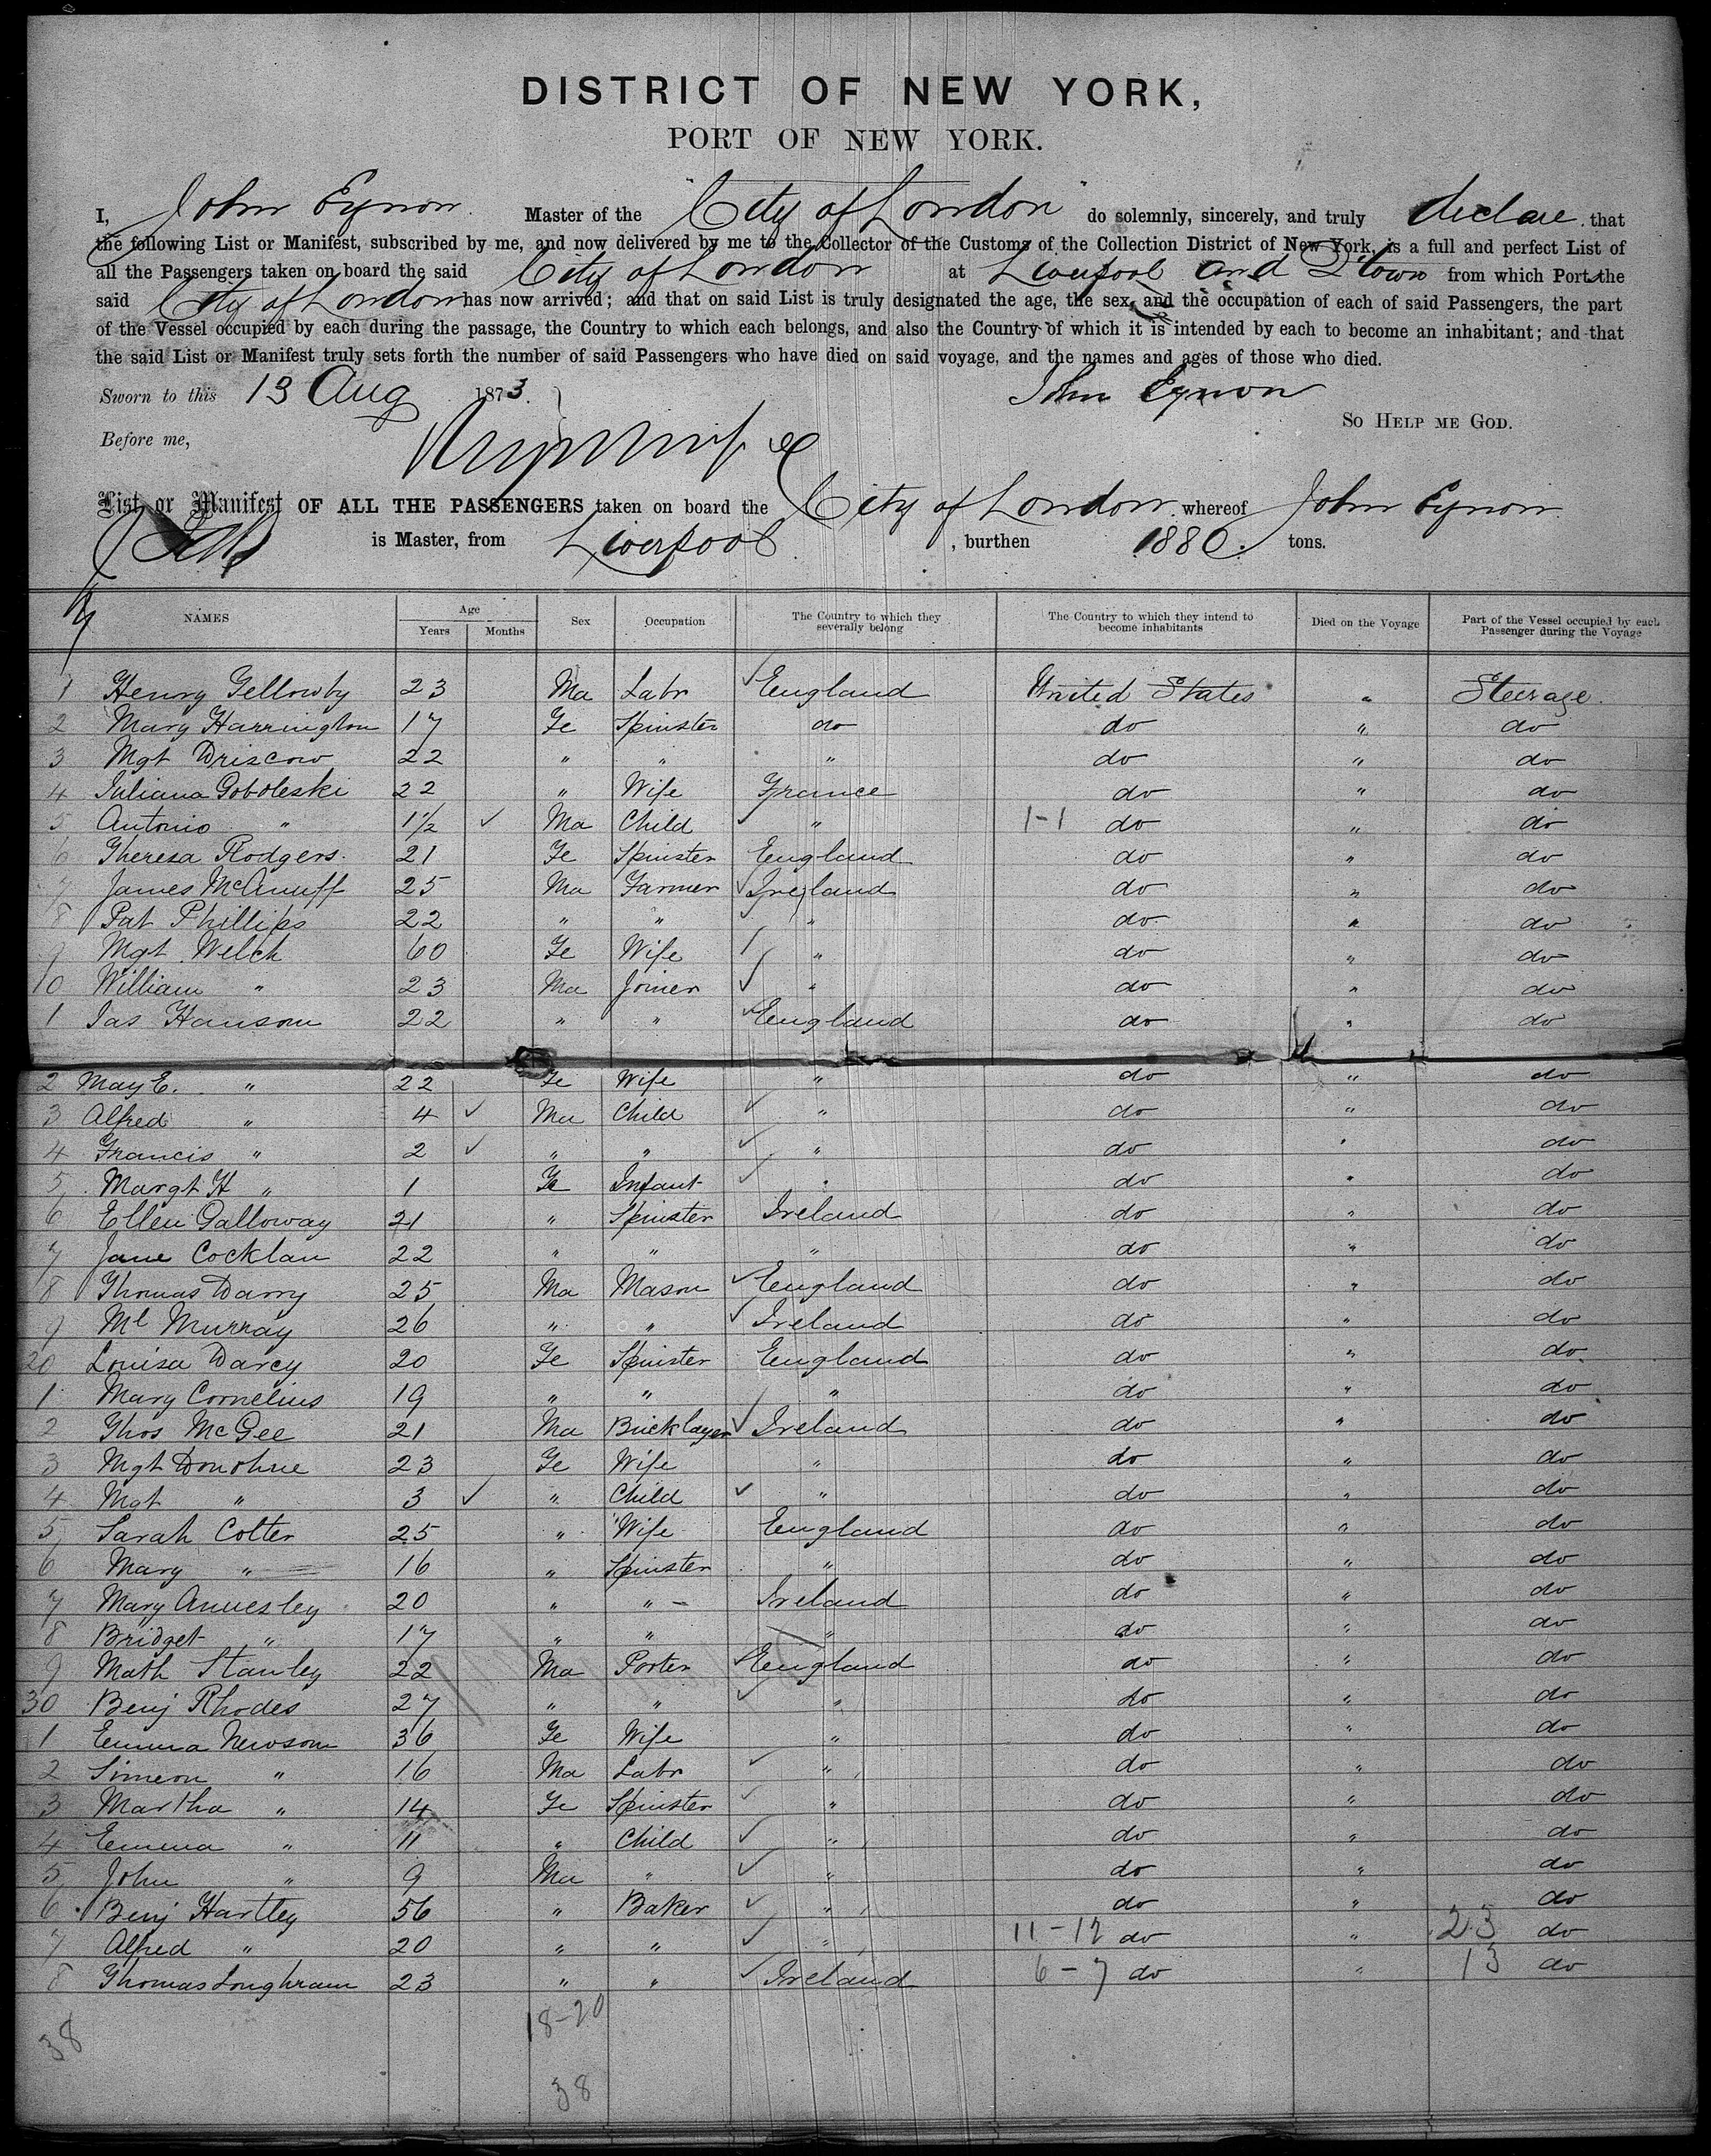 DISTRICT OF NEW YORK,
PORT OF NEW YORK.
I, John Eynon Master of the "City of London" do solemnly, sincerely, and truly declare that
the following List or Manifest, subscribed by me, and now delivered by me to the Collector of the Customs of the Collection District of New York, is a full and perfect List of
all the Passengers taken on board the said City of London at Liverpool and Q'town from which Port the
said City of London has now arrived; and that on said List is truly designated the age, the sex, and the occupation of each of said Passengers, the part
of the Vessel occupied by each during the passage, the Country to which each belongs, and also the Country of which it is intended by each to become an inhabitant; and that
the said List or Manifest truly sets forth the number of said Passengers who have died on said voyage, and the names and ages of those who died.
Sworn to this 13 Aug 1873. John Eynon
So HELP ME GOD.
Before me,
List or Manifest OF ALL THE PASSENGERS taken on board the City of London whereof John Eynon
is Master, from Liverpool, burthen 1880. tons.
NAMES Age Years Months Sex Occupation The Country to which they severally belong The Country to which they intend to become inhabitants Died on the Voyage Part of the Vessel occupied by each Passenger during the Voyage
1 Henry Gellowby 23 Ma Labr England United States " Steerage
2 Mary Harrington 17 Fe Spinster do do " do
3 Mgt Driscow 22 " " " do " do
4 Juliana Goboleski 22 " Wife France do " do
5 Antonio " 1½ ✓ Ma Child ✓ " 1-1 do " do
6 Theresa Rodgers 21 Fe Spinster England do " do
7 James McAnuff 25 Ma Farmer ✓ Ireland do " do
8 Pat Phillips 22 " " ✓ " do " do
9 Mgt Welch 60 Fe Wife / " do " do
10 William " 23 Ma Joiner ✓ " do " do
1 Jas Hansom 22 " " ✓ England do " do
2 May E. " 22 Fe Wife " do " do
3 Alfred " 4 ✓ Ma Child ✓ " do " do
4 Francis " 2 ✓ " " ✓ " do " do
5 Margt H " 1 Fe Infant ✓ " do " do
6 Ellen Galloway 21 " Spinster Ireland do " do
7 Jane Cocklan 22 " " " do " do
8 Thomas Darry 25 Ma Mason ✓ England do " do
9 Ml Murray 26 " " ✓ Ireland do " do
20 Louisa Darcy 20 Fe Spinster England do " do
1 Mary Cornelius 19 " " " do " do
2 Thos McGee 21 Ma Bricklayer ✓ Ireland do " do
3 Mgt Donohue 23 Fe Wife " do " do
4 Mgt " 3 ✓ " Child ✓ " do " do
5 Sarah Colter 25 " Wife England do " do
6 Mary " 16 " Spinster " do " do
7 Mary Annesley 20 " " Ireland do " do
8 Bridget " 17 " " " do " do
9 Math Stanley 22 Ma Porter ✓ England do " do
30 Benj Rhodes 27 " " ✓ " do " do
1 Emma Newsom 36 Fe Wife " do " do
2 Simeon " 16 Ma Labr ✓ " do " do
3 Martha " 14 Fe Spinster ✓ " do " do
4 Emma " 11 " Child ✓ " do " do
5 John " 9 Ma " ✓ " do " do
6 Benj Hartley 56 " Baker ✓ " do " do
7 Alfred " 20 " " ✓ " 11-12 do " 23 do
8 Thomas Loughram 23 " " ✓ Ireland 6-7 do " 13 do
18-20
38
38